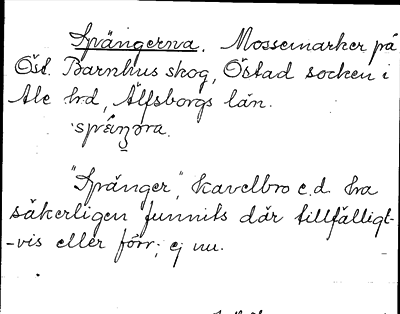 Spängerna. Mossemarker på
Öst. Barnhus skog, Östad socken i
Ale hd, Älfsborgs län.
"Spänger", kavelbro e.d. ha
säkerligen funnits där tillfälligt-
-vis eller förr; ej nu.